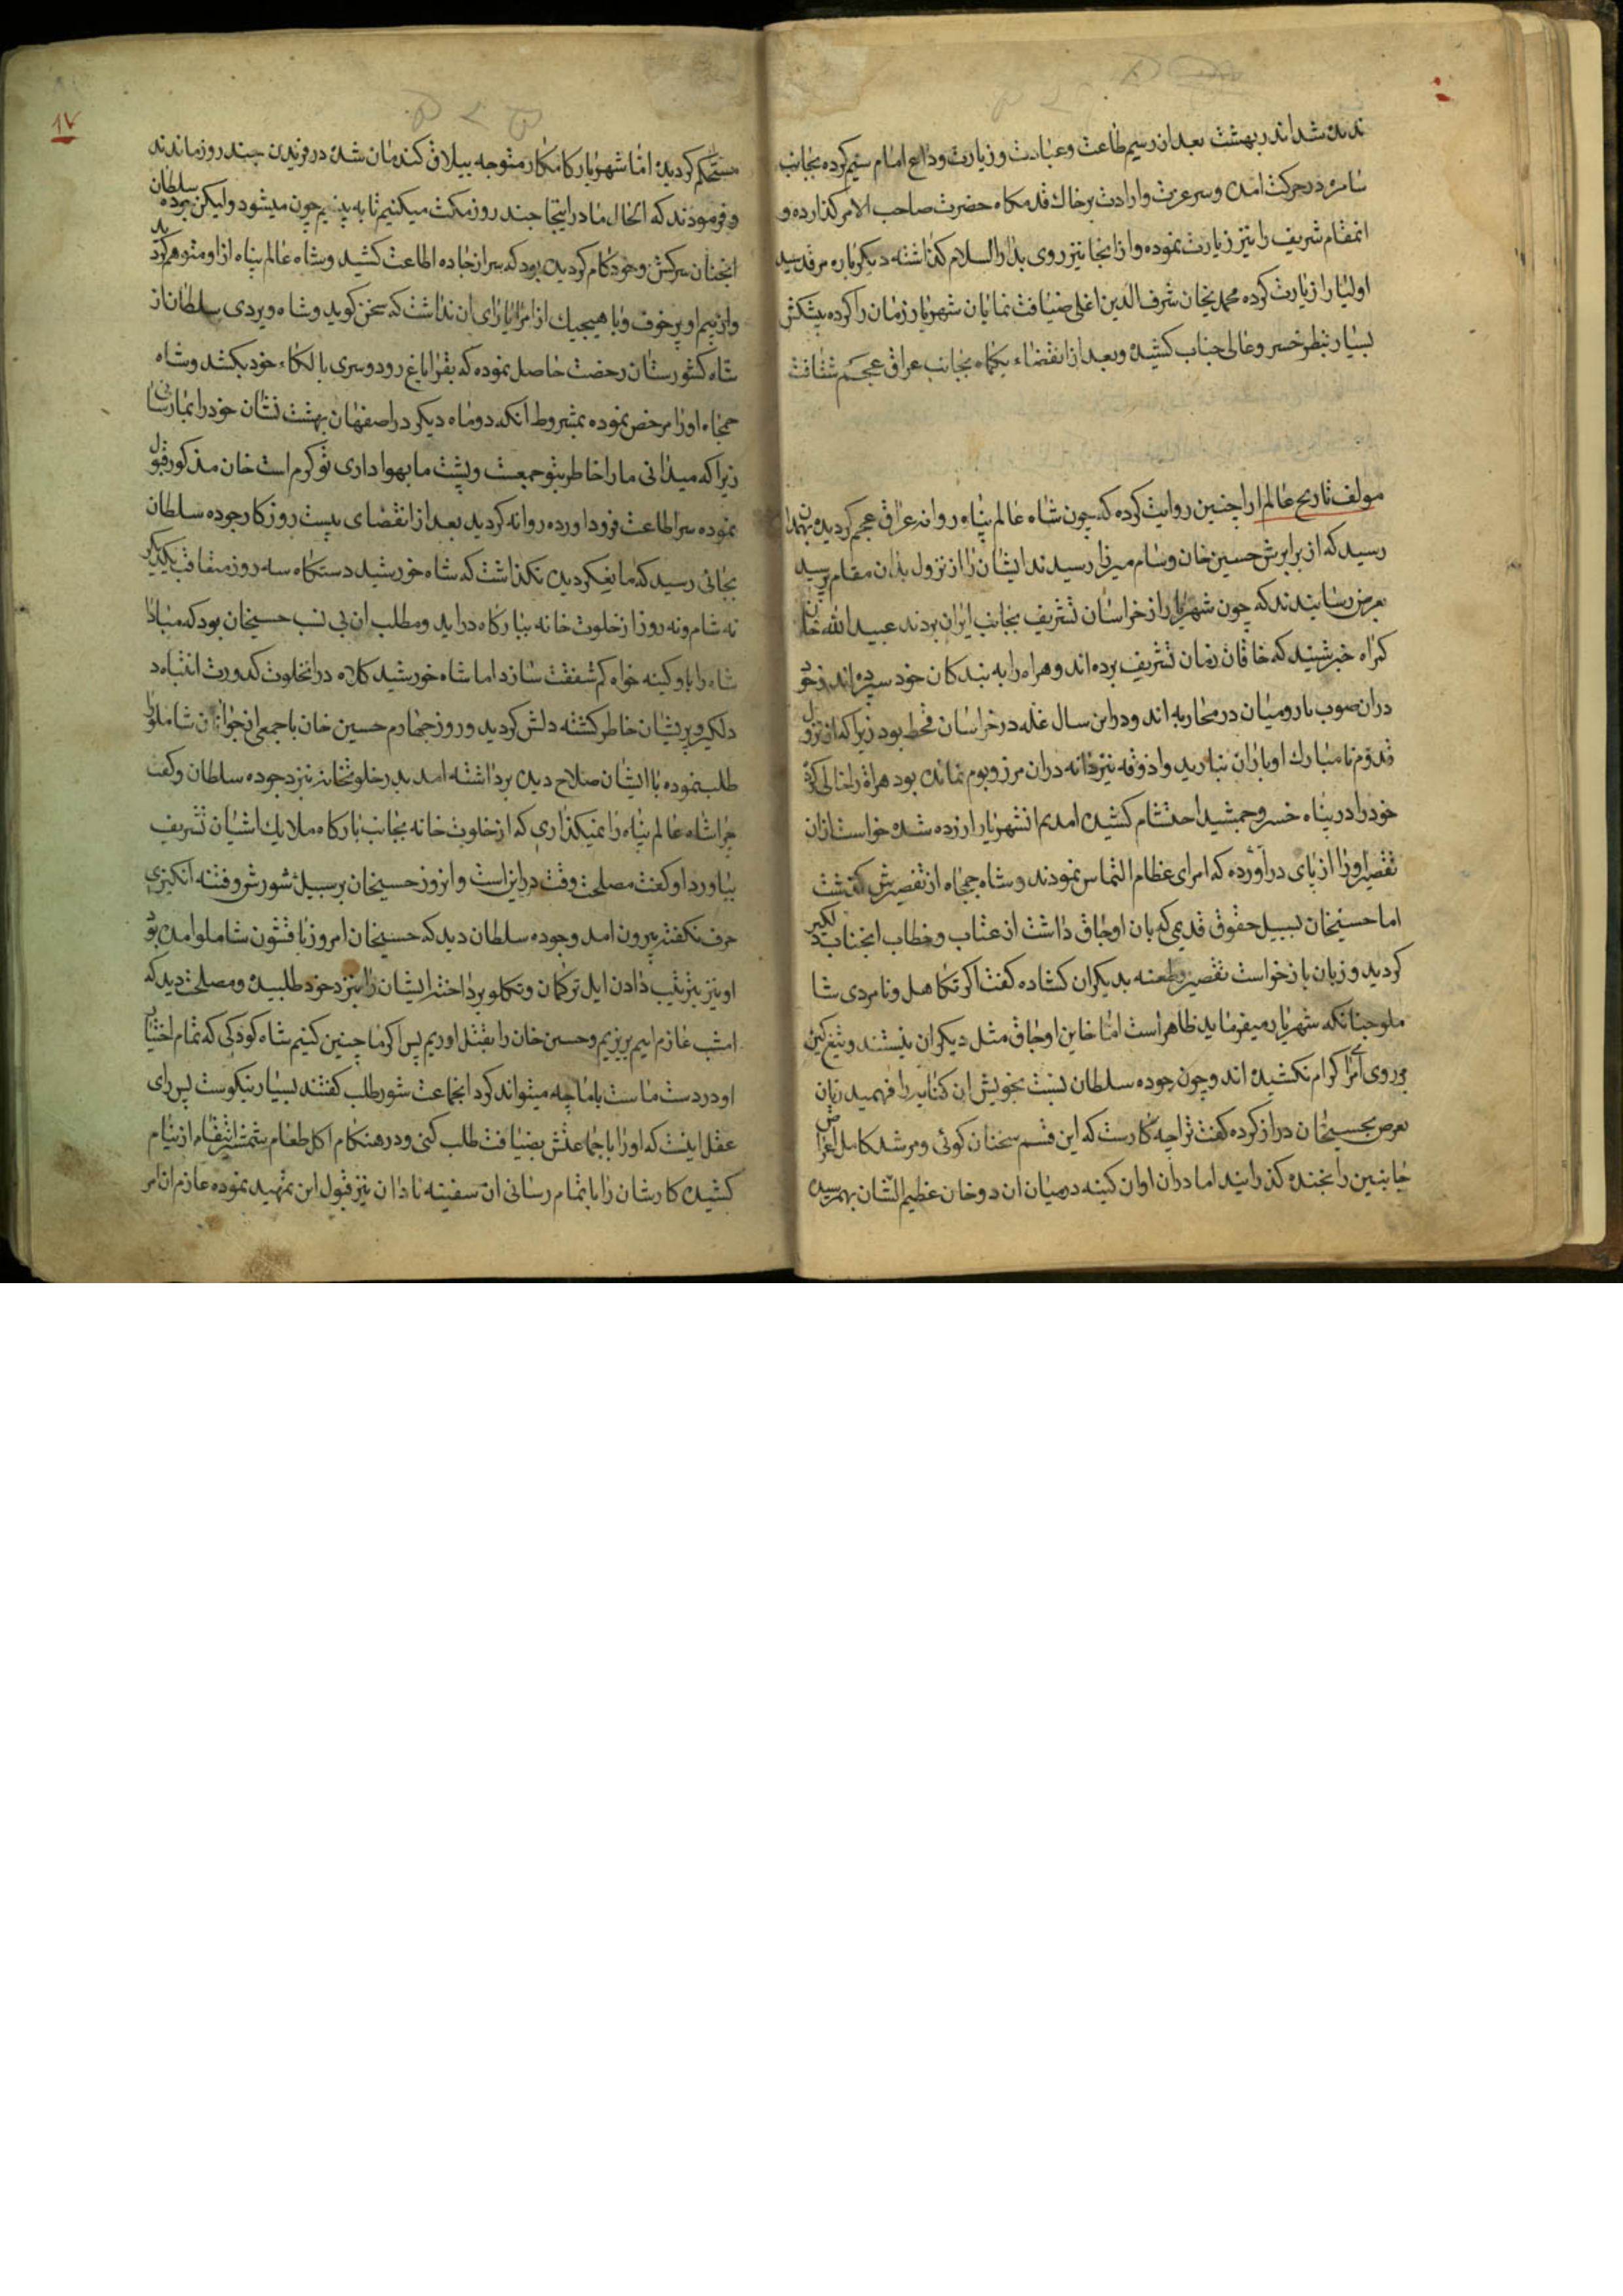 شد اند بهشت بعد ان رسیم طاعت وعبادت و زیارت وداع امام سیم کرده بجانب
سامره در حرکت امده وسر عزت وارادت بر خاك قدمکاه حضرت صاحب الامر کذارده و
انمقام شریف را نیز زیارت نموده واز انجا نیز روی بدار السلام کذاشته دیکر باره مرقد سید
اولیا را زیارت کرده محمد یخان شرف الدین اغلی ضیافت نمایان شهریار زمان را کرده پیشکش
بسیار بنظر خسرو عالی جناب کشیده وبعد از انقضاء یکماه بجانب عراق عجم شتافت
مولف تاریخ عالم ارا چنین روایت کرده که چون شاه عالم پناه روانه عراق عجم کردیده بهمدان
رسید که از برابرش حسین خان وسام میرزا رسیدند ایشان را از نزول بدان مقام پرسید
بعرض رسانیدند که چون شهریار از خراسان تشریف بجانب ایران بردند عبید الله خان
کمراه خبر شنید که خاقان زمان تشریف برده اند وهراه را به بندکان خود سپرده اند وخود
دران صوب با رومیان در محاربه اند ودر این سال غله در خراسان قحط بود زیرا که از نزول
قدوم نامبارك او باران نبارید واذوقه نیز دانه دران مرز وبوم نمانده بود هراة را خالی کرده
خود را در پناه خسرو جمشید احتشام کشیده امدیم انشهریار ازرده شده خواست ازان
تقصیر اورا از پای دراورده که امرای عظام التماس نمودند وشاه جمجاه از تقصیرش کذشت
اما حسینخان بسبیل حقوق قدیمی که بان اوجاق داشت از عتاب وخطاب انجناب دلکیر
کردید و زبان باز خواست تقصیر وطعنه بدیکران کشاده کفت اکر تکاهل ونامردی شا
ملو چنانکه شهریار میفرماید ظاهر است اما خاین اوجاق مثل دیکران نیستند وتیغ کین
بر روی امرای کرام نکشیده اند وچون جوده سلطان نسبت بخویش ان کنایه را فهمید زبان
بعرض بحسینخان دراز کرده کفت ترا چه کار است که این قسم سخنان کوئی ومرشد کامل اعراض
جانبین را بخنده کذرانید اما دران اوان کینه در میان ان دو خان عظیم الشان بهمرسیده
۱۷
مستحکم کردیده اما شهریار کامکار متوجه ییلاق کندمان شده در فریدن چند روز ماندند
وفرمودند که الحال ما در اینجا چند روز مکث میکنیم تا به بینیم چون میشود ولیکن جوده سلطان
انچنان سرکش وخودکام کردیده بود که سر از جاده اطاعت کشید وشاه عالم پناه از او متوهم کردید
واز بیم او پر خوف وبا هیچیك از امرا یارای ان نداشت که سخن کوید وشاه ویردی سلطان از
شاه کشورستان رخصت حاصل نموده که بقراباغ رود وسری بالکاء خود بکشد وشاه
جمجاه اورا مرخص نموده بشروط انکه دو ماه دیکر در اصفهان بهشت نشان خود را بما رسانی
زیرا که میدانی ما را خاطر بتو جمعست وپشت ما بهواداری تو کرم است خان مذکور قبول
نموده سر اطاعت فرود اورده روانه کردید بعد از انقضای بیست روز کار جوده سلطان
بجائی رسید که مانع کردیده نکذاشت که شاه خورشید دستکاه سه روز متعاقب یکدیکر
نه شام ونه روز از خلوت خانه ببارکاه دراید ومطلب ان بی نسب حسینخان بود که مبادا
شاه را با وکینه خواه کم شفقت سازد اما شاه خورشید کلاه درانخلوت کدورت انتباه
دلکیر وپریشان خاطر کشته دلش کردید وروز چهارم حسین خان با جمعی از جوانان شاملو را
طلب نموده با ایشان صلاح دیده برداشته امد بدر خلوتخانه نیزد جوده سلطان وکفت
چرا شاه عالم پناه را نمیکذاری که از خلوت خانه بجانب بارکاه ملایك اشیان تشریف
بیاورد او کفت مصلحت وقت در این است وانروز حسینخان بر سبیل شورش وفتنه انکیزی
حرف نکفته بیرون امد وجوده سلطان دید که حسینخان امروز با قشون شاملو امده بود
او نیز بترتیب دادن ایل ترکمان وتکلو پرداخته ایشان را نیزد خود طلبیده ومصلحت دید که
امشب عازم اییم بریزیم وحسین خان را بقتل اوریم پس اکر ما چنین کنیم شاه کودکی که تمام اختیار
او در دست ماست باما چه میتواند کرد انجماعت شور طلب کفتند بسیار نیکوست پس رای
عقل اینست که اورا با جماعتش بضیافت طلب کنی ودر هنکام اکل طعام شمشیر انتقام از نیام
کشیده کار شان را باتمام رسانی ان سفیه نادان نیز قبول این تمهید نموده عازم ان امر